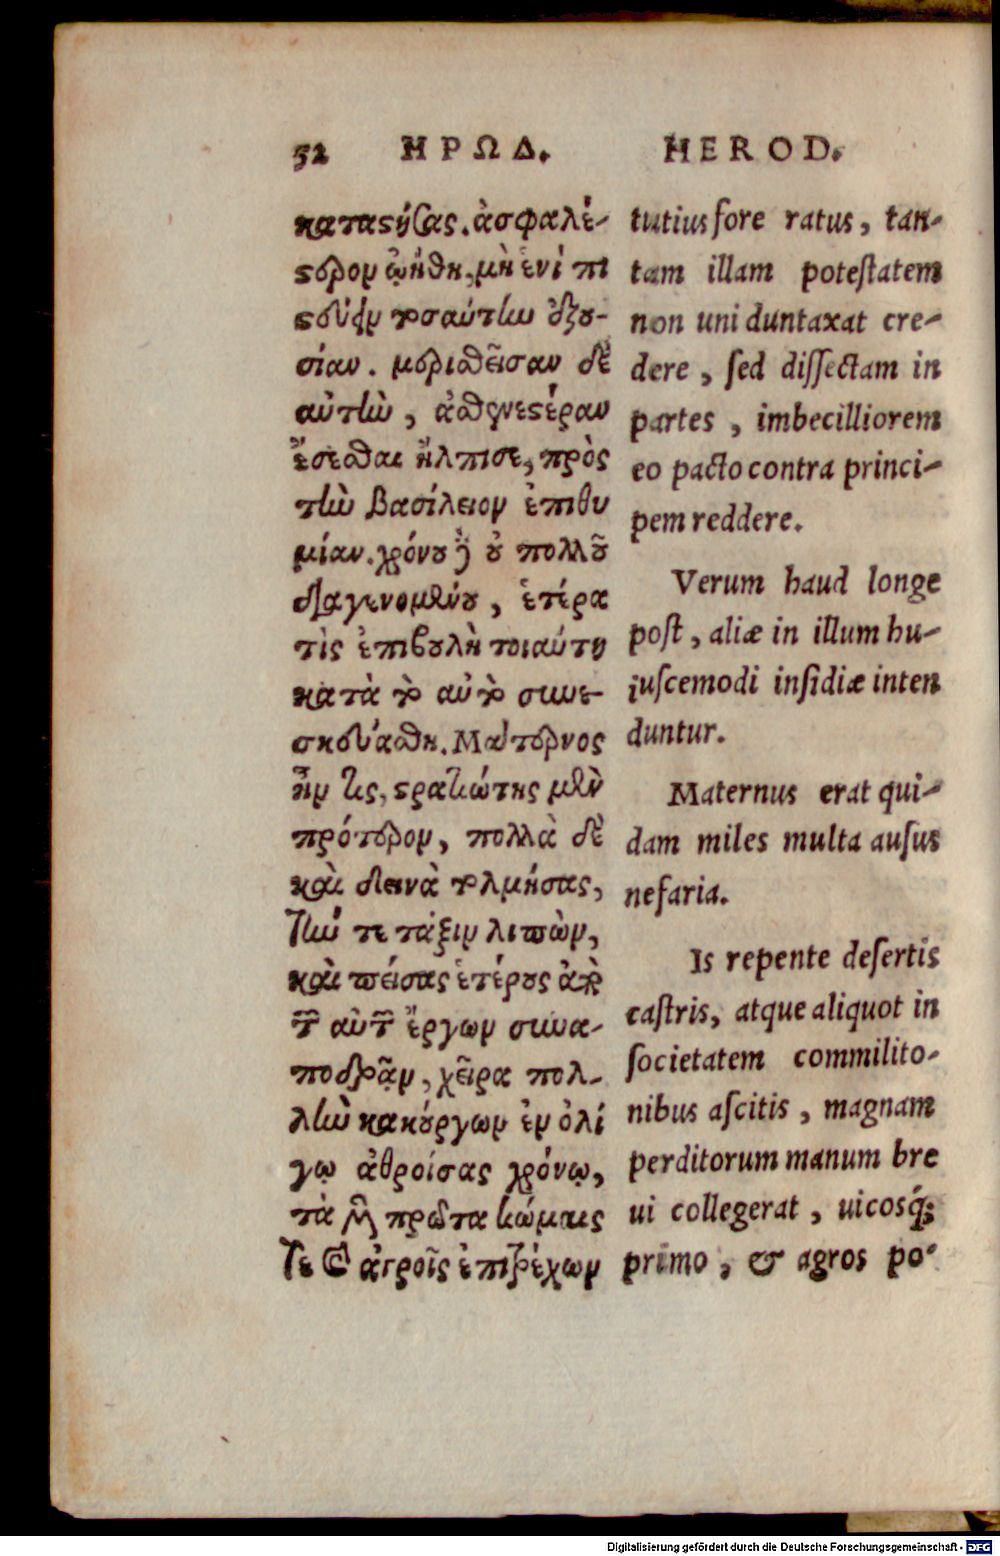 52 ΗΡΩΔ. HEROD.
καταστήσας. ἀσφαλέ-
στερον ᾠήθη, μὴ ἑνὶ πι
στεύειν τοσαύτην ἐξου-
σίαν. μερισθεῖσαν δὲ
αὐτὴν, ἀσθενεστέραν
ἔσεσθαι ἤλπισε, πρὸς
τὴν βασίλειον ἐπιθυ
μίαν. χρόνου δὲ οὐ πολλοῦ
διαγενομένου, ἑτέρα
τὶς ἐπιβουλὴ τοιαύτη
κατὰ τὸ αὐτὸ συνε-
σκευάσθη. Μάτερνος
ἦν τις, στρατιώτης μὲν
πρότερον, πολλὰ δὲ
καὶ δεινὰ τολμήσας,
τήν τε τάξιν λιπὼν,
καὶ πείσας ἑτέρους ἀπὸ
τῶν αὐτῶν ἔργων συνα-
ποδρᾷν, χεῖρα πολ-
λὴν κακούργων ἐν ὀλί
γῳ ἀθροίσας χρόνῳ,
τὰ μὲν πρῶτα κώμαις
τε καὶ ἀγροῖς ἐπιτρέχων
tutius fore ratus, tan-
tam illam potestatem
non uni duntaxat cre-
dere, sed dissectam in
partes, imbecilliorem
eo pacto contra princi-
pem reddere.
Verum haud longe
post, aliæ in illum hu-
iuscemodi insidiæ inten
duntur.
Maternus erat qui-
dam miles multa ausus
nefaria.
Is repente desertis
castris, atque aliquot in
societatem commilito-
nibus ascitis, magnam
perditorum manum bre
ui collegerat, uicosq́;
primo, & agros po-
Digitalisierung gefördert durch die Deutsche Forschungsgemeinschaft - DFG